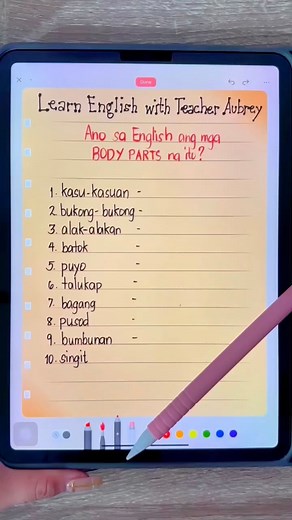 Done
Learn English with Teacher Aubrey
Ano sa English ang mga
BODY PARTS na ito?
1. kasu-kasuan -
2. bukong-bukong -
3. alak-alakan -
4. batok -
5. puyo -
6. talukap -
7. bagang -
8. pusod -
9. bumbunan -
10. singit